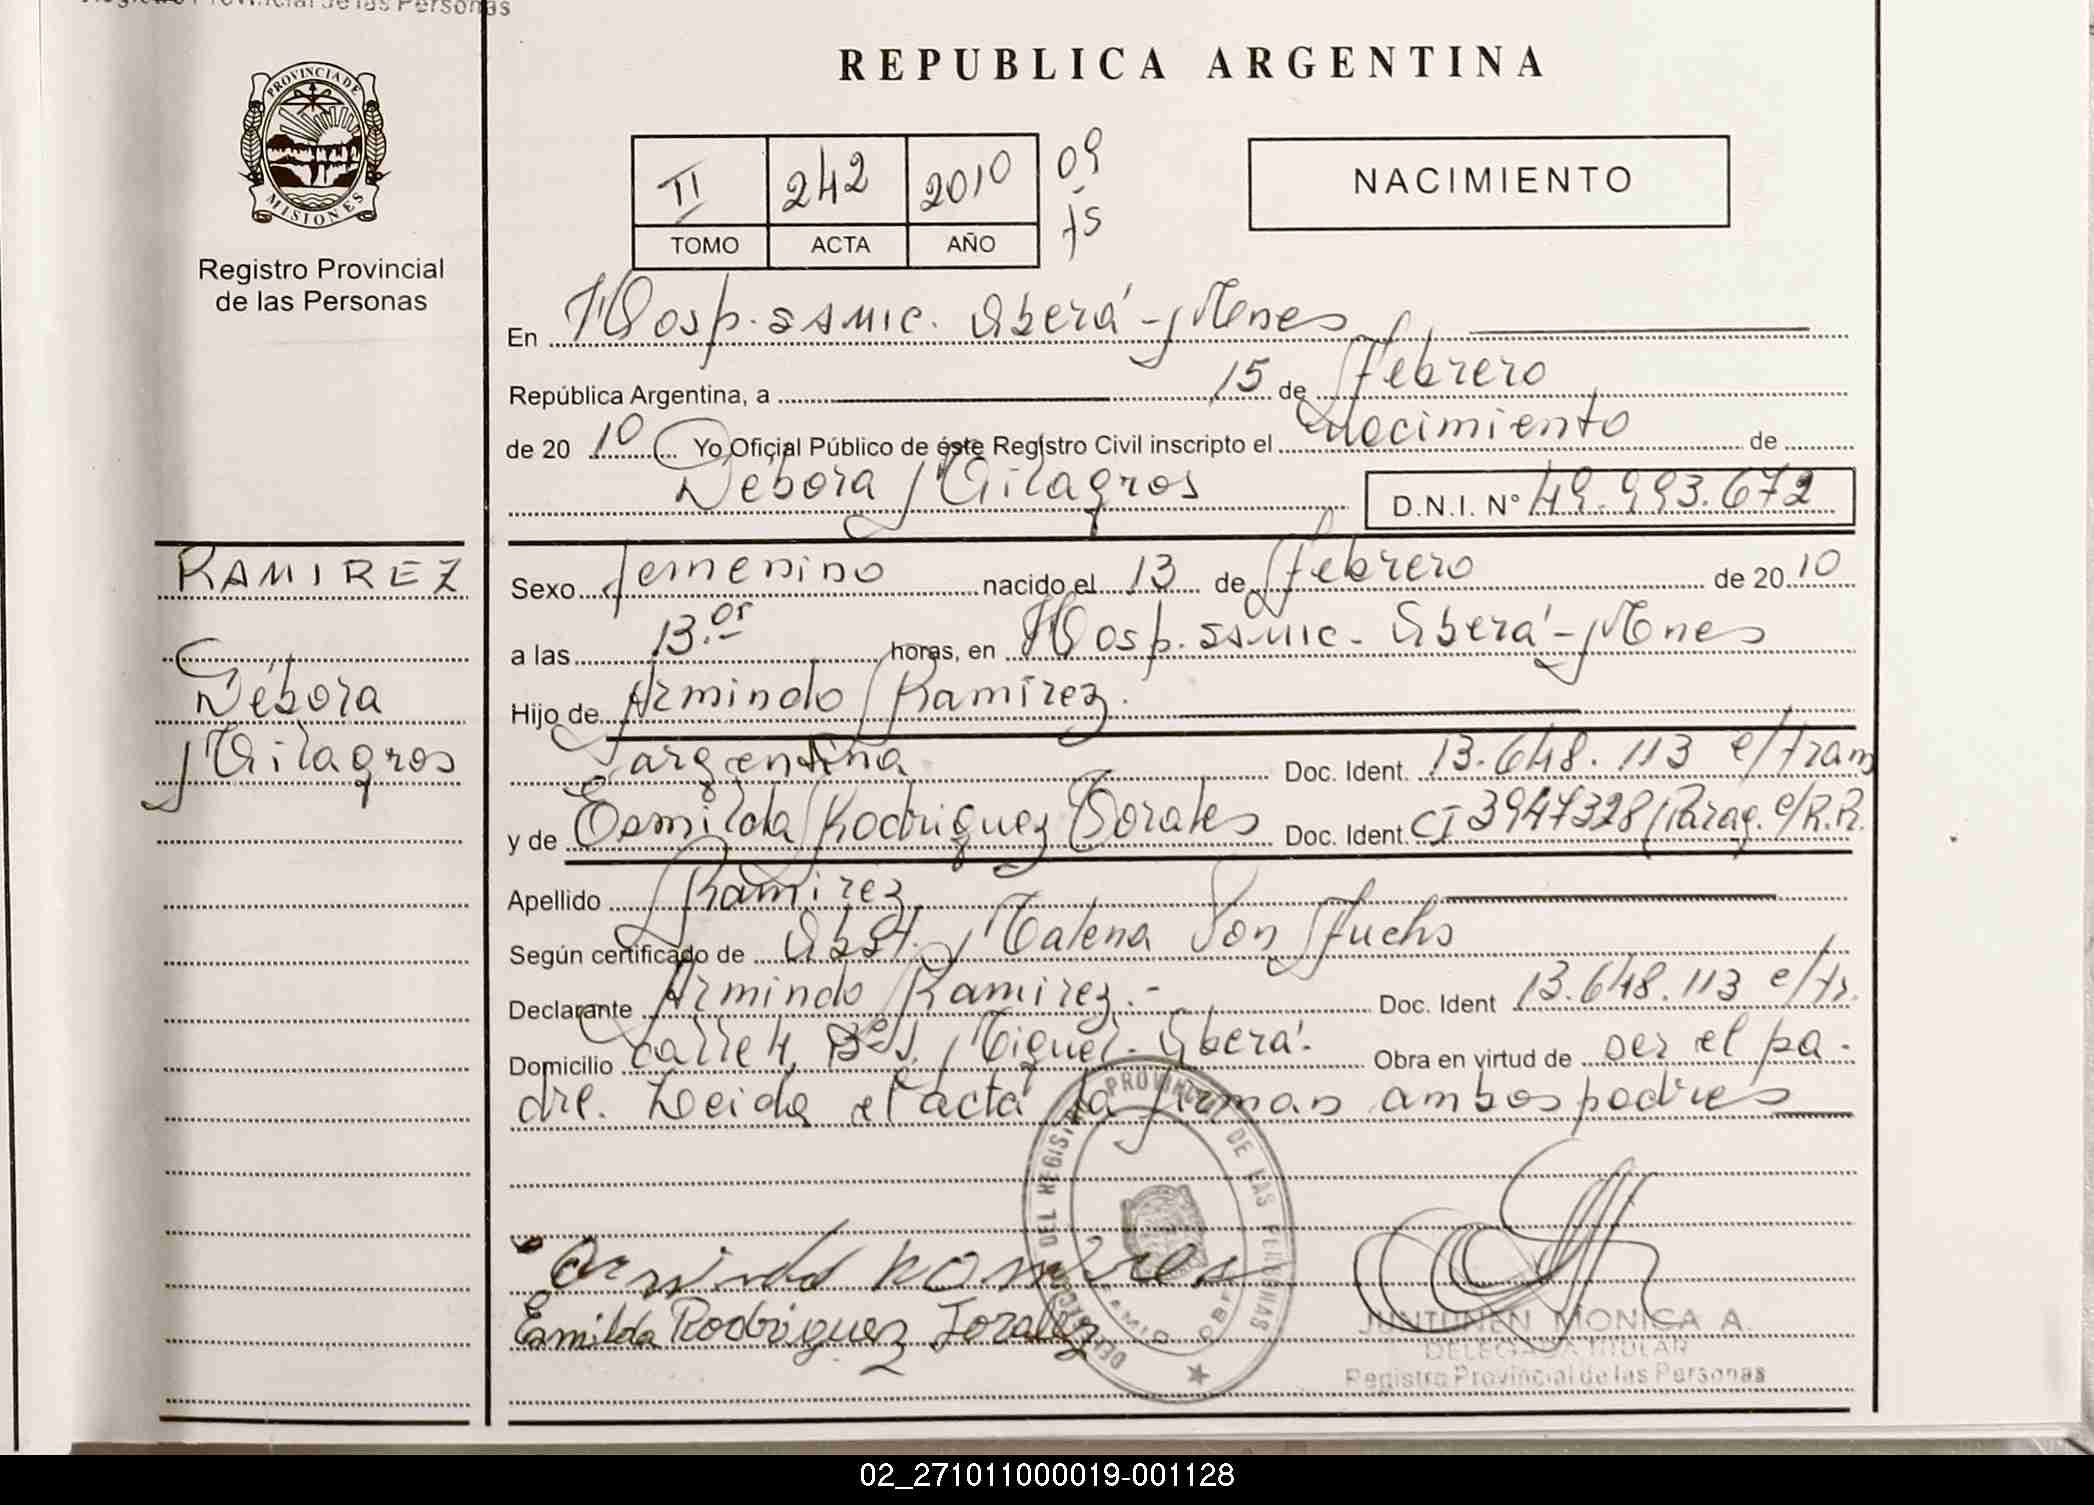 Registro Provincial de las Personas
REPUBLICA ARGENTINA
PROVINCIA DE
MISIONES
Registro Provincial
de las Personas
II 242 2010 09
15
TOMO ACTA AÑO
NACIMIENTO
En Hosp. SAMIC. Oberá - Mnes
República Argentina, a 15 de Febrero
de 20 10 Yo Oficial Público de éste Registro Civil inscripto el nacimiento de
Débora Milagros D.N.I. Nº 49.993.672
RAMIREZ
Débora
Milagros
Sexo femenino nacido el 13 de Febrero de 20 10
a las 13.05 horas, en Hosp. SAMIC - Oberá - Mnes
Hijo de Armindo Ramirez.
argentina Doc. Ident. 13.648.113 e/tram
y de Esmilda Rodriguez Torales Doc. Ident. CI 3947328 / Parag. e/R.R.
Apellido Ramirez
Según certificado de Obst. Malena Von Fuchs
Declarante Armindo Ramirez.- Doc. Ident 13.648.113 e/tr.
Domicilio Calle 4, Bº S. Miguel - Oberá. Obra en virtud de ser el pa-
dre. Leida el acta la firman ambos padres
Armindo Ramires
Esmilda Rodriguez Torales
DEL REGISTRO PROVINCIAL DE LAS PERSONAS
JUNTUNEN MONICA A.
DELEGADA TITULAR
Registro Provincial de las Personas
02_271011000019-001128